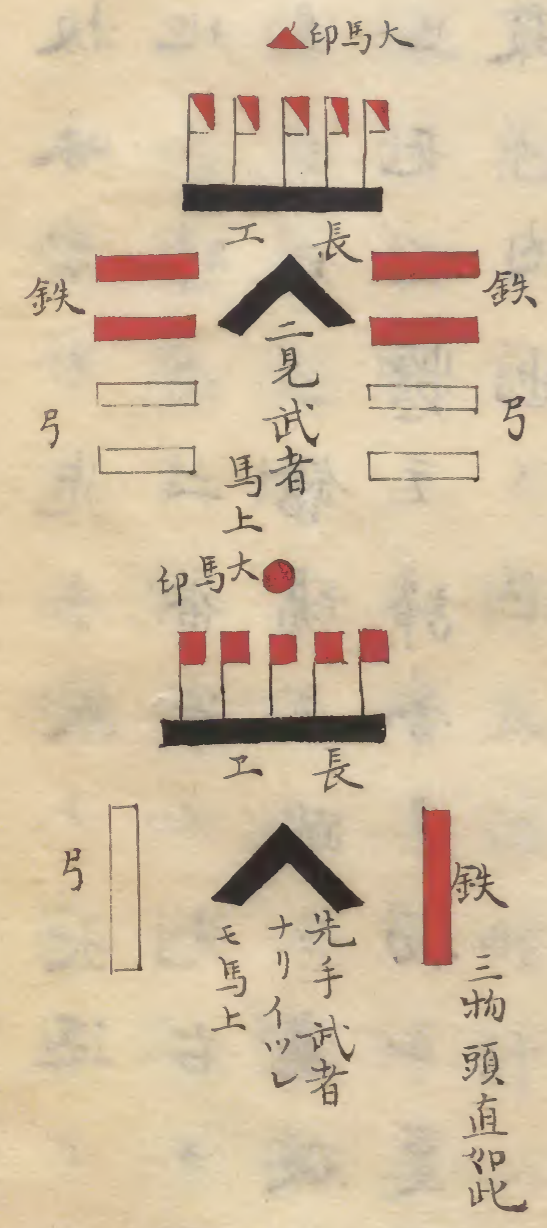 大馬印
長 エ
鉄
鉄
弓
弓
二見武者
馬上
大馬印
長 エ
鉄
弓
先手武者
ナリイツレ
モ馬上
三物頭直如此